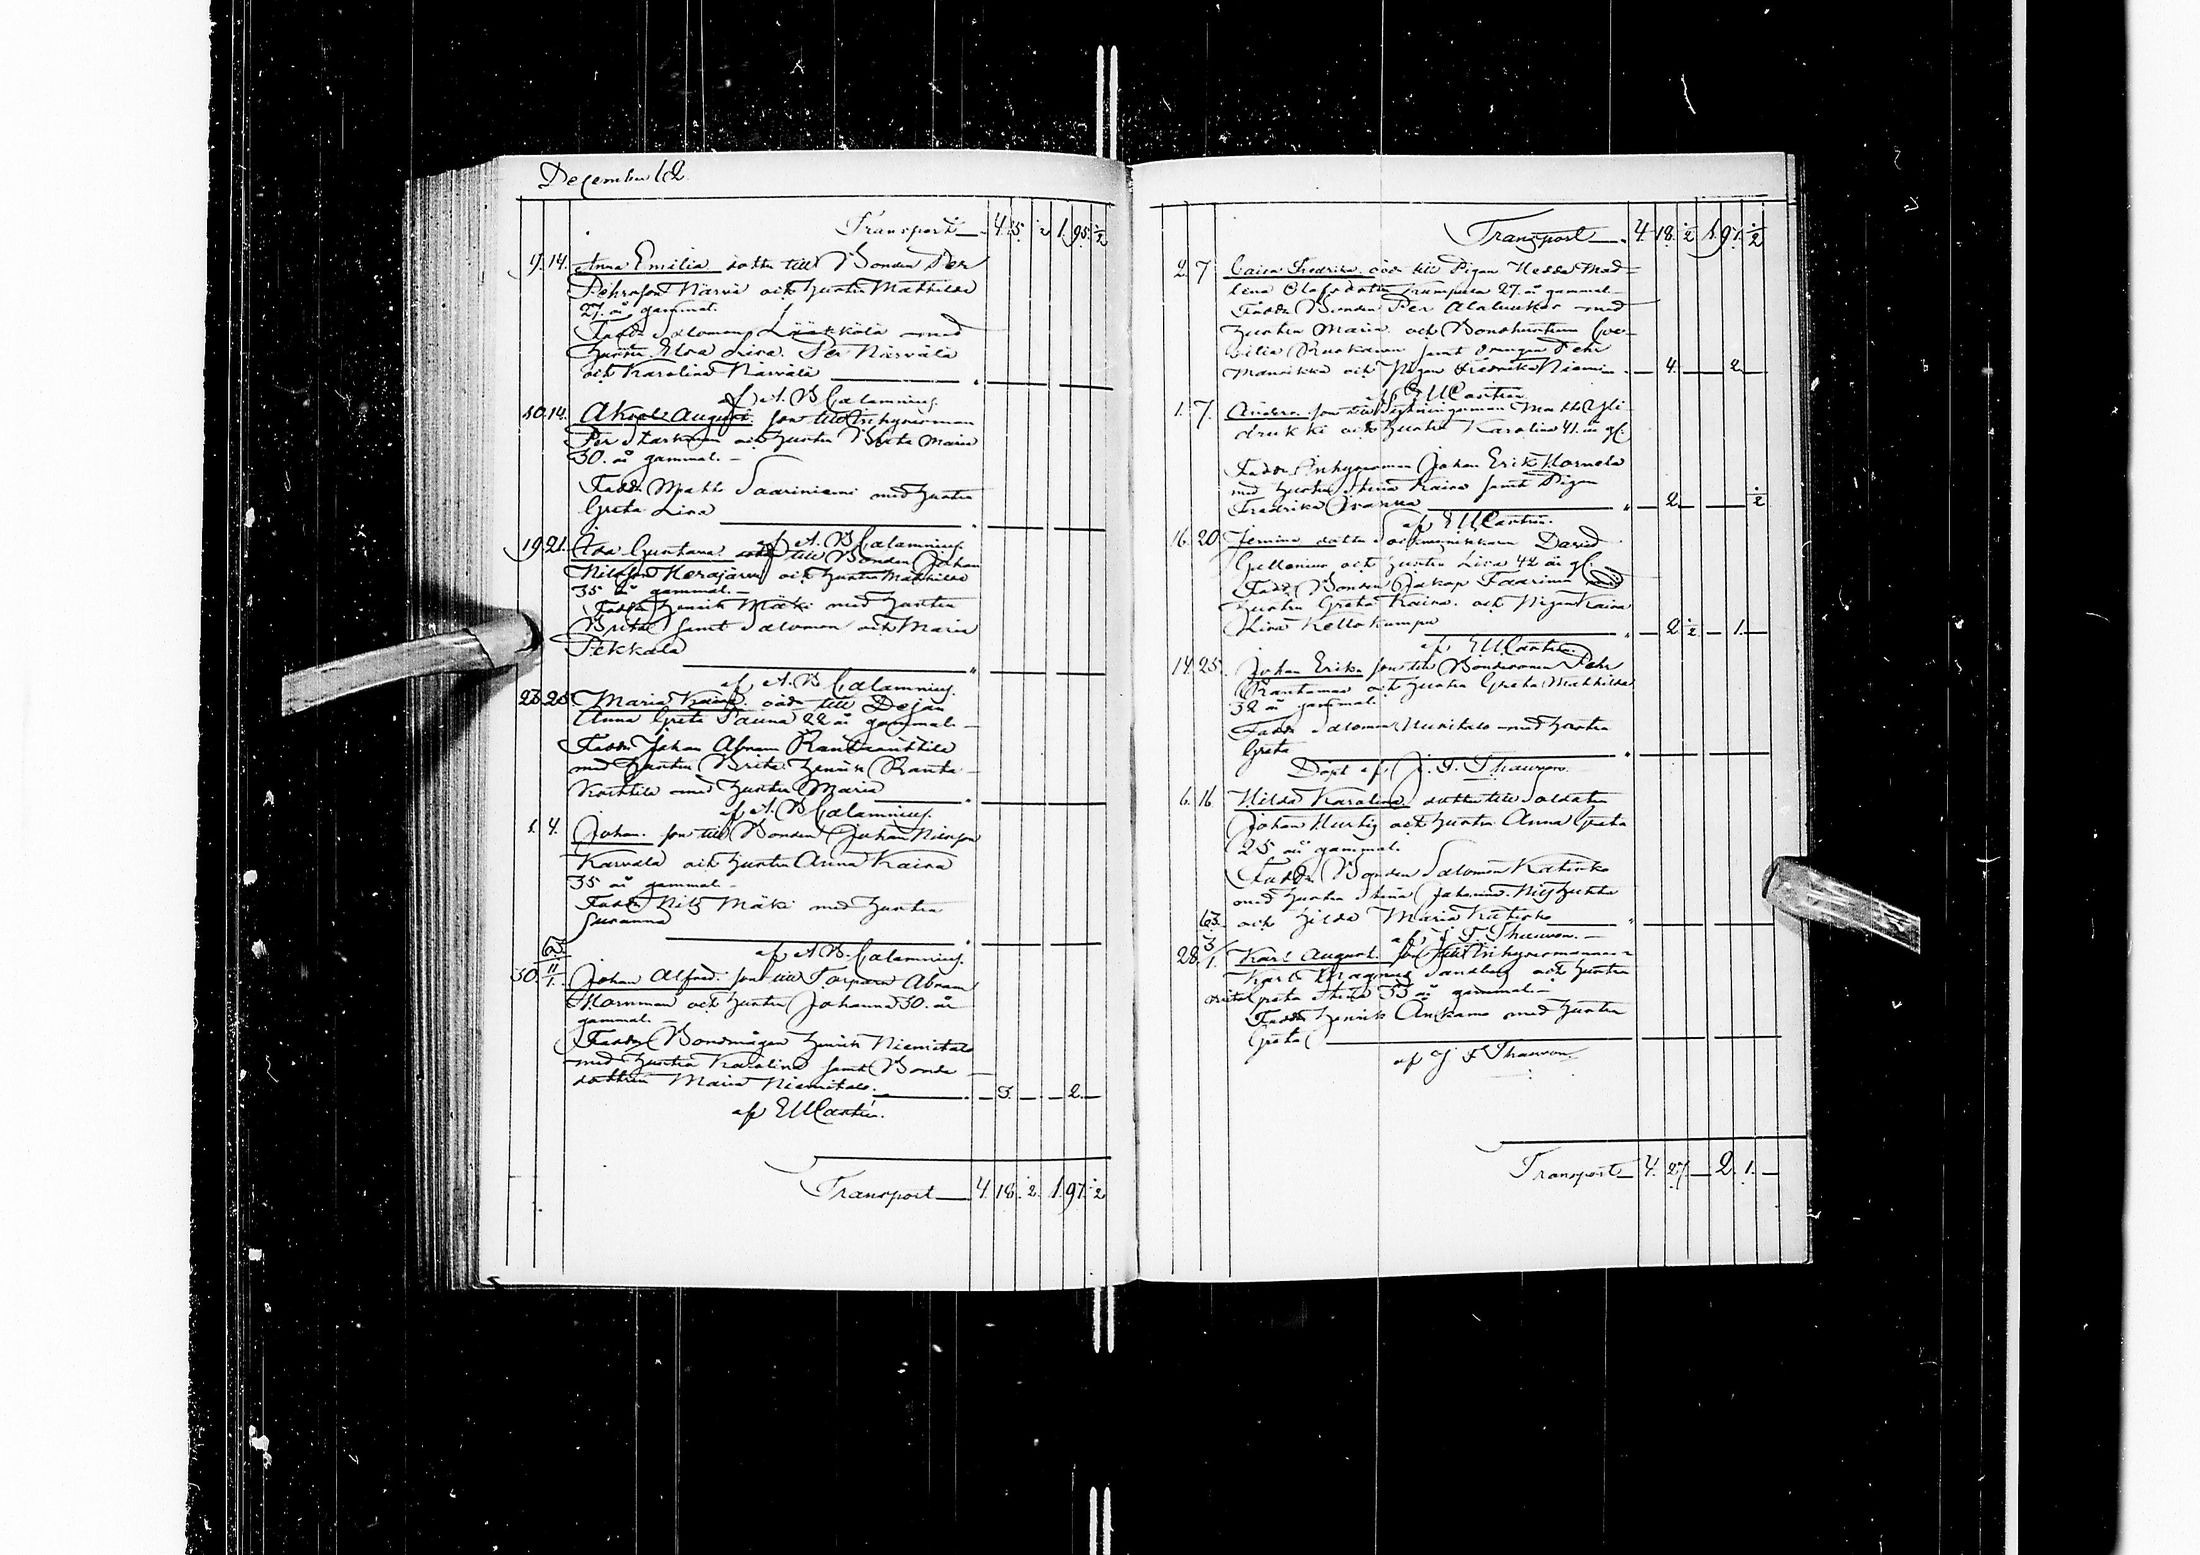 December 62.
Transport 4. 15. ½ 1. 95. ½
9. 14. Anna Emilia dotter till Bonden Per
Pehrsson Närvä och hustru Mathilda
27. år gammal.
Fadd. Salomon Lääkkölä med
hustru Elsa Lisa. Per Närvälä
och Karolina Närvälä
af A. B Calamnius.
10. 14. Aksel August. son till Inhysesman
Per Starkman och hustru Brita Maria
30. år gammal.
Fadd. Matts Saariniemi med hustru
Greta Lisa
af A. B Calamnius.
19. 21. Ida Gustava dotter till Bonden Johan
Nilsson Herajärvi och hustru Mathilda
35 år gammal.
Fadd. Henrik Mäki med hustru
Brita samt Salomon och Maria
Pekkala
af A. B Calamnius.
23. 25. Maria Kaisa. oäd. till Dejan
Anna Greta Pauna 22 år gammal.
Fadd. Johan Abram
med hustru Brita. Henrik Ranta
med hustru Maria
af A. B Calamnius.
1. 4. Johan. son till Bonden Johan Nilsson
Karvala och hustru Anna Kaisa
35 år gammal.
Fadd. Nils Mäki med hustru
Susanna
af A B. Calamnius.
63.
30. 11/1. Johan Alfred. son till Torparn Abram
och hustru Johanna 30. år
gammal.
Fadd. Bondmågen Henrik Niemitalo
med hustru Karolina samt Bonde
dottren Maria Niemitalo. 3. 2.
af E M Castrén.
Transport 4. 18. ½ 1. 97. ½
Transport 4. 18. ½ 1. 97. ½
2. 7. Caisa Fredrika. oäd. till Pigan Hedda Mad-
lena Olofsdotter Kumpula 27. år gammal.
Fadd. Bonden Per Alaluukas med
hustru Maria och Bondhustrun Ce-
cilia Ruokanen samt Drengen Pehr
Mansikka och Pigan Fredrika Niemi 4. 2.
af E M Castrén.
1. 7. Anders. son till Matts Yli-
drukki och hustru Karolina 41. år gl.
Fadd. Inhysesman Johan Erik Hornela
med hustru Stina Kaisa samt Pigan
Fredrika 2. ½
af E M Castrén.
16. 20. Jemina dotter Sockneskräddarn David
Gellenius och hustru Lisa 42 år gl.
Fadd. Bonden Jakop Faarinen med
hustru Greta Kaisa. och Pigan Kaisa
Lisa Kellokumpu 2. ½ 1.
af E M Castrén.
14. 25. Johan Erik. son till Bondesonen Pehr
Rantamaa och hustru Greta Mathilda
32 år gammal.
Fadd. Salomon med hustru
Greta
Döpt af J. F. Thauvon
6. 16. Hilda Karolina. dotter till Soldaten
Johan Hurtig och hustru Anna Greta
25 år gammal.
Fadd. Bonden Salomon Katisko
med hustru Stina Johanna.
och Hilda Maria Katisko
af J F Thauvon.
63.
28. 3/1. Karl August. son till Inhysesmannen
Karl Magnus Sandberg och hustru
Greta Stina 33 år gammal.
Fadd. Henrik Ankamo med hustru
Greta
af J F Thauvon.
Transport 4. 27. 2. 1.